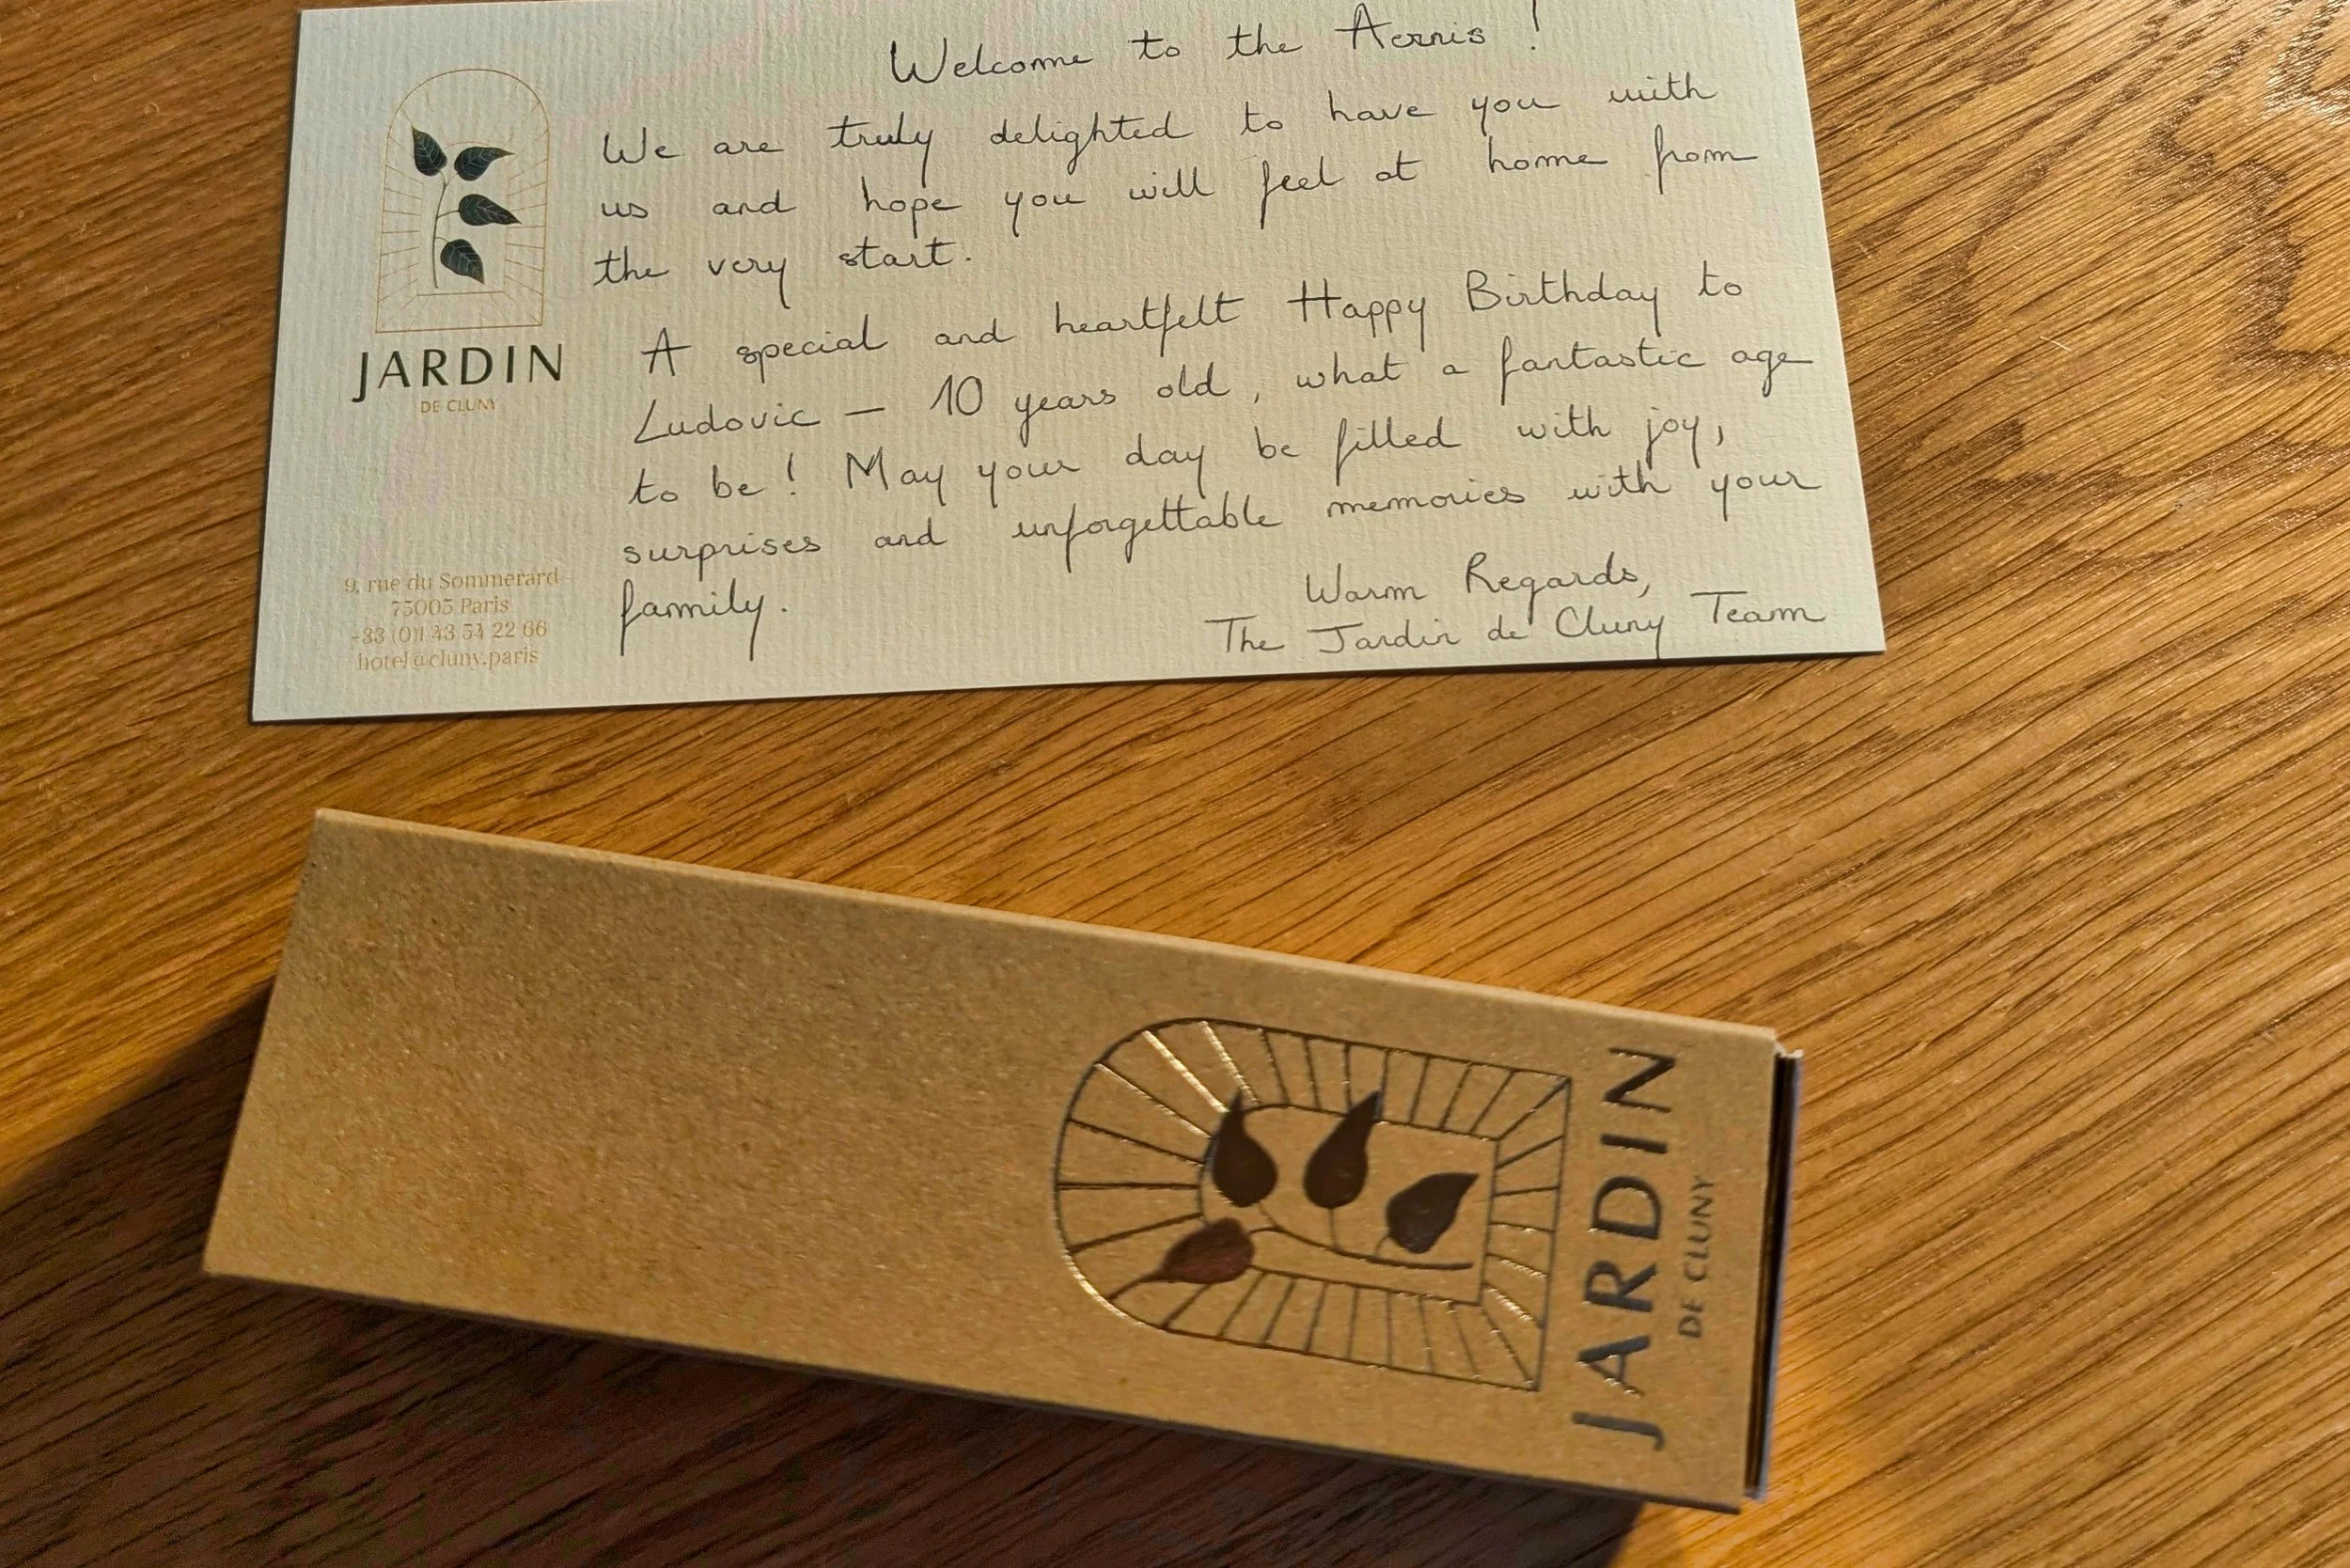 Welcome to the Aernis !
We are truly delighted to have you with
us and hope you will feel at home from
the very start.
A special and heartfelt Happy Birthday to
Ludovic — 10 years old, what a fantastic age
to be! May your day be filled with joy,
surprises and unforgettable memories with your
family.
Warm Regards,
The Jardin de Cluny Team
JARDIN
DE CLUNY
9, rue du Sommerard
75005 Paris
+33 (0)1 43 54 22 66
hotel@cluny.paris
JARDIN
DE CLUNY